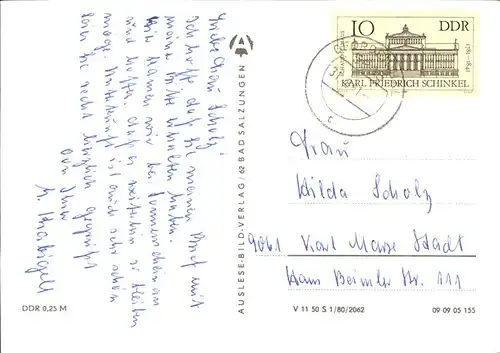 Liebe Frau Scholz!
Ich hoffe, daß Sie meinen Brief mit
meiner Bitte erhalten haben.
Hier kamen wir bei Sonnenschein an
und hoffen, daß es weiterhin so bleiben
möge. Unterkunft ist auch sehr schön
Seien Sie recht herzlich gegrüßt
von Ihrer
DDR 0,25 M
AUSLESE-BILD-VERLAG/62 BAD SALZUNGEN
10 DDR
1781-1841
KARL FRIEDRICH SCHINKEL
Frau
Hilda Scholz
9061 Karl Marx Stadt
Hans Beimler Str. 111
V 11 50 S 1/80/2062
09 09 05 155